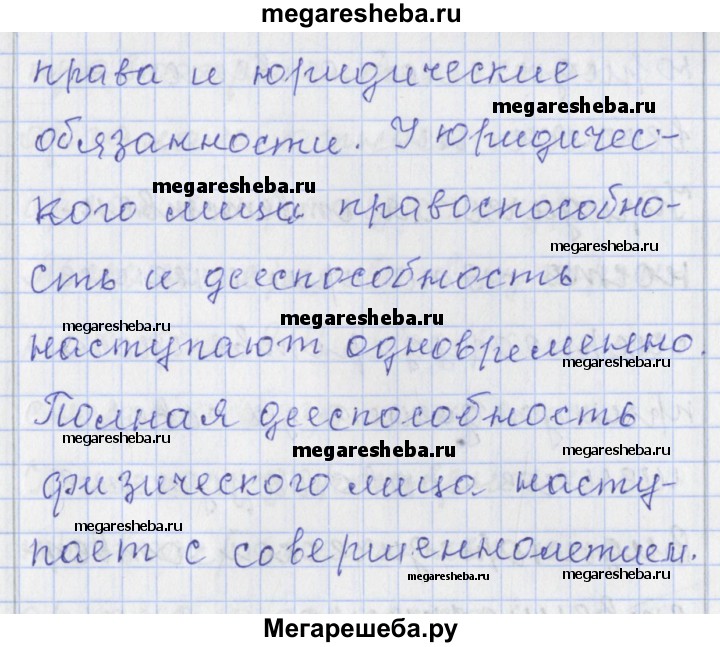 megaresheba.ru
права и юридические
megaresheba.ru
обязанности. У юридичес-
megaresheba.ru
кого лица правоспособно-
megaresheba.ru
сть и дееспособность
megaresheba.ru
megaresheba.ru
наступают одновременно.
megaresheba.ru
Полная дееспособность
megaresheba.ru
megaresheba.ru
megaresheba.ru
физического лица насту-
megaresheba.ru
пает с совершеннолетием.
megaresheba.ru
megaresheba.ru
Мегарешеба.ру